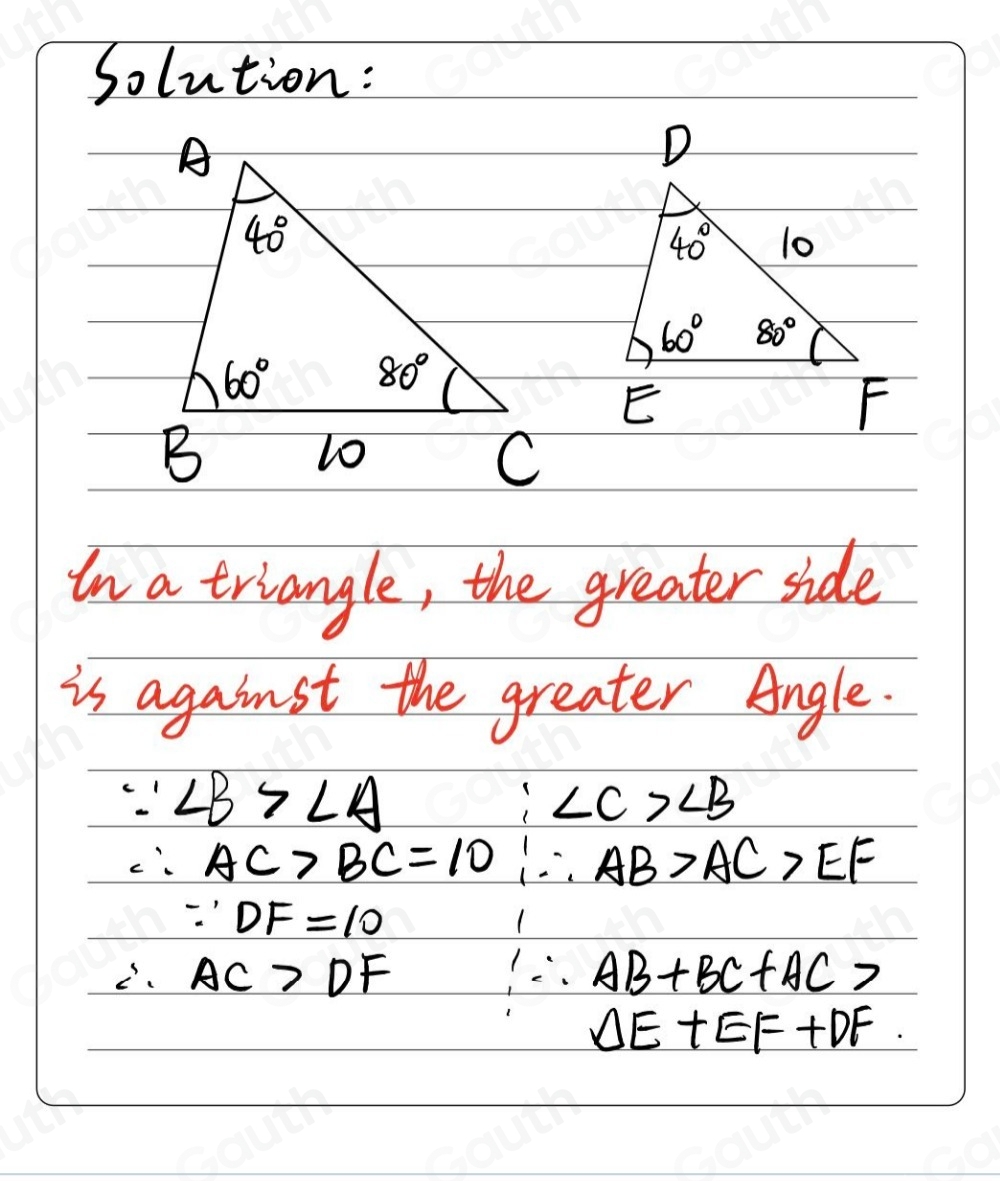 Solution:
A
D
40°
40°
10
60°
80°
60°
80°
E
F
B
10
C
In a triangle, the greater side
is against the greater Angle.
∵ ∠B > ∠A
∴ AC > BC = 10
∵ DF = 10
∴ AC > DF
∠C > ∠B
∴ AB > AC > EF
∴ AB + BC + AC >
DE + EF + DF.
Gauth